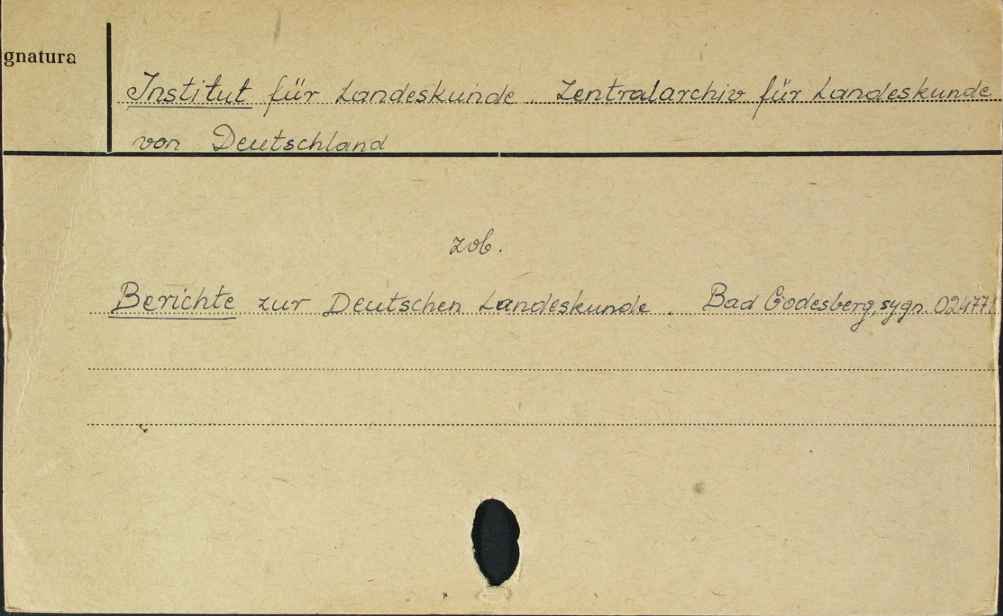 gnatura
Institut für Landeskunde. Zentralarchiv für Landeskunde
von Deutschland
zob.
Berichte zur Deutschen Landeskunde. Bad Godesberg, sygn.